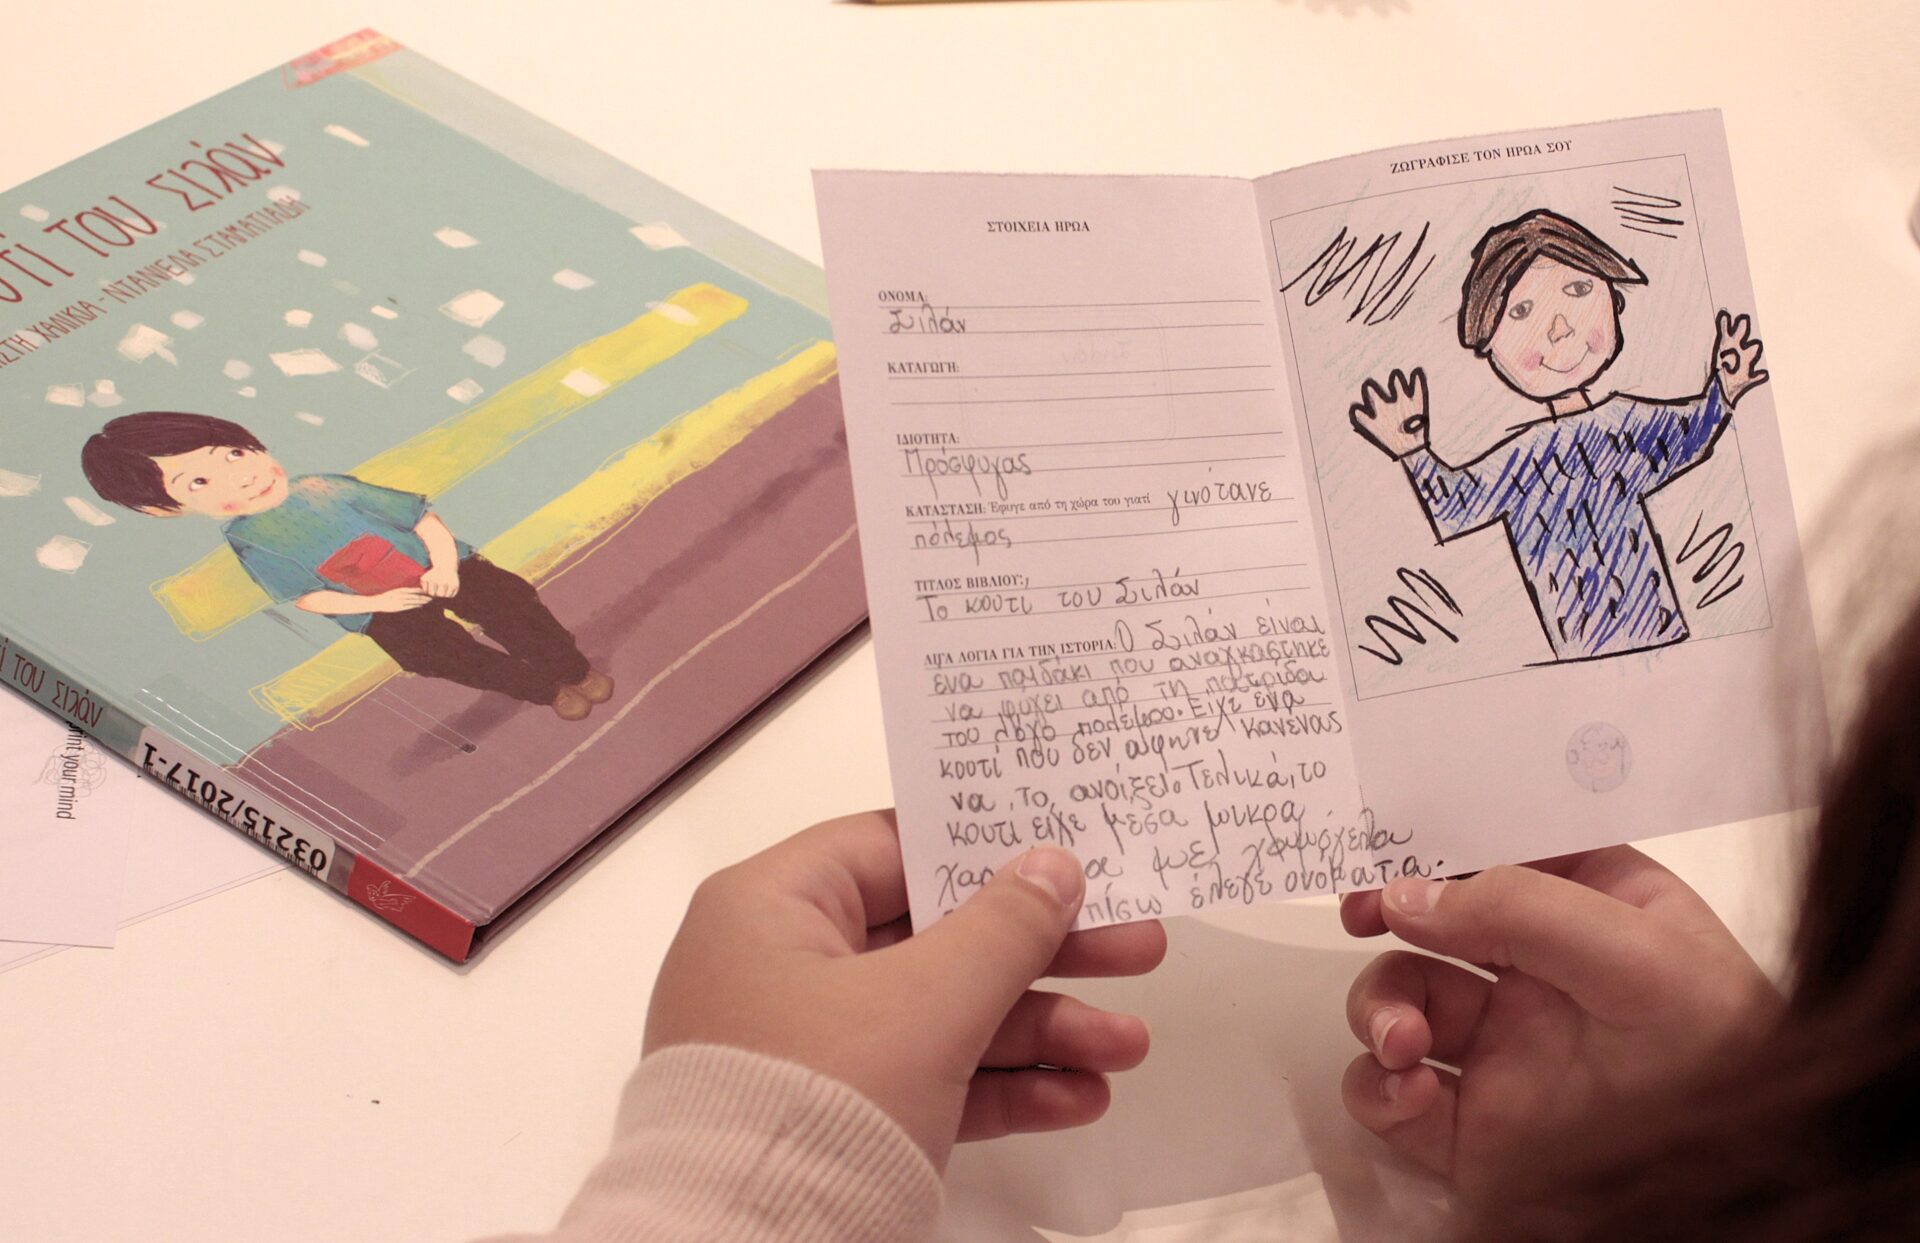 ΟΤΙ ΤΟΥ ΣΙΛΑΝ
ΧΑΛΙΚΙΑ - ΝΤΑΝΙΕΛΑ ΣΤΑΜΑΤΙΑΔΗ
ΤΟΥ ΣΙΛΑΝ
03215/2017-1
print your mind
ΣΤΟΙΧΕΙΑ ΗΡΩΑ
ΟΝΟΜΑ:
Σιλάν
ΚΑΤΑΓΩΓΗ:
ΙΔΙΟΤΗΤΑ:
Πρόσφυγας
ΚΑΤΑΣΤΑΣΗ: Έφυγε από τη χώρα του γιατί γινότανε
πόλεμος
ΤΙΤΛΟΣ ΒΙΒΛΙΟΥ:
Το κουτί του Σιλάν
ΛΙΓΑ ΛΟΓΙΑ ΓΙΑ ΤΗΝ ΙΣΤΟΡΙΑ: Ο Σιλάν είναι
ένα παιδάκι που αναγκάστηκε
να φύγει από τη πατρίδα
του λόγο πολέμου. Είχε ένα
κουτί που δεν άφηνε κανένας
να το ανοίξει. Τελικά, το
κουτί είχε μέσα μικρά
με χαμόγελα
πίσω έλεγε ονόματα.
ΖΩΓΡΑΦΙΣΕ ΤΟΝ ΗΡΩΑ ΣΟΥ